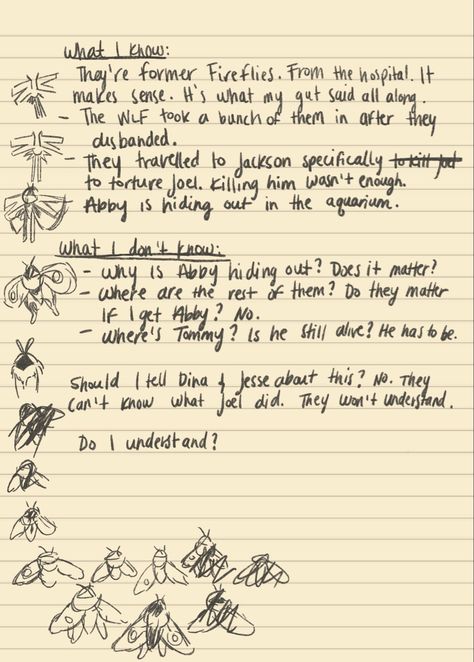 What I know:
They're former Fireflies. From the hospital. It
makes sense. It's what my gut said all along.
- The WLF took a bunch of them in after they
disbanded.
- They travelled to Jackson specifically to kill Joel
to torture Joel. Killing him wasn't enough.
- Abby is hiding out in the aquarium.
What I don't know:
- Why is Abby hiding out? Does it matter?
- Where are the rest of them? Do they matter
if I get Abby? No.
- Where's Tommy? Is he still alive? He has to be.
Should I tell Dina & Jesse about this? No. They
can't know what Joel did. They won't understand.
Do I understand?